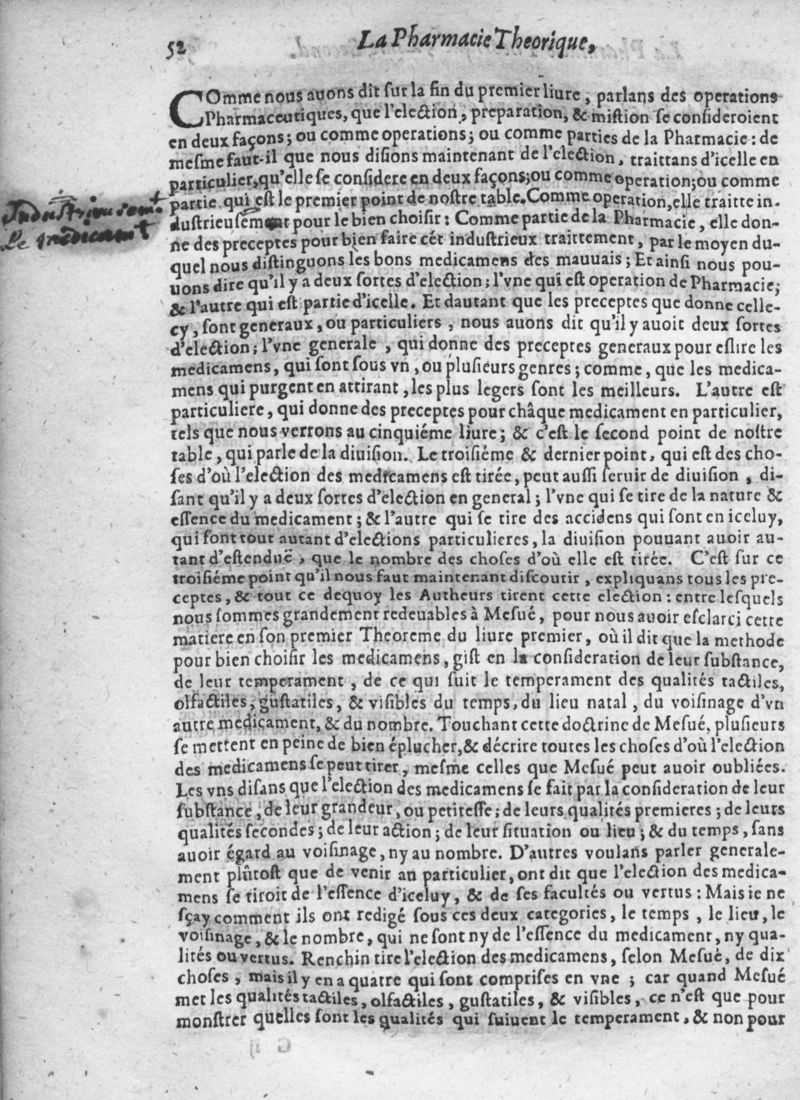 52
La Pharmacie Theorique,
COmme nous auons dit sur la fin du premier liure, parlans des operations
Pharmaceutiques, que l'election, preparation, & mistion se consideroient
en deux façons; ou comme operations; ou comme parties de la Pharmacie: de
mesme faut-il que nous disions maintenant de l'election, traittans d'icelle en
particulier, qu'elle se considere en deux façons; ou comme operation; ou comme
partie qui est le premier point de nostre table. Comme operation, elle traitte in-
Industrieusemt
le medicamt
dustrieusement pour le bien choisir: Comme partie de la Pharmacie, elle don-
ne des preceptes pour bien faire cét industrieux traittement, par le moyen du-
quel nous distinguons les bons medicamens des mauuais; Et ainsi nous pou-
uons dire qu'il y a deux sortes d'election; l'vne qui est operation de Pharmacie;
& l'autre qui est partie d'icelle. Et dautant que les preceptes que donne celle-
cy, sont generaux, ou particuliers, nous auons dit qu'il y auoit deux sortes
d'election; l'vne generale, qui donne des preceptes generaux pour eslire les
medicamens, qui sont sous vn, ou plusieurs genres; comme, que les medica-
mens qui purgent en attirant, les plus legers sont les meilleurs. L'autre est
particuliere, qui donne des preceptes pour châque medicament en particulier,
tels que nous verrons au cinquiéme liure; & c'est le second point de nostre
table, qui parle de la diuision. Le troisiéme & dernier point, qui est des cho-
ses d'où l'election des medicamens est tirée, peut aussi seruir de diuision, di-
sant qu'il y a deux sortes d'election en general; l'vne qui se tire de la nature &
essence du medicament; & l'autre qui se tire des accidens qui sont en iceluy,
qui font tout autant d'elections particulieres, la diuision pouuant auoir au-
tant d'estenduë, que le nombre des choses d'où elle est tirée. C'est sur ce
troisiéme point qu'il nous faut maintenant discourir, expliquans tous les pre-
ceptes, & tout ce dequoy les Autheurs tirent cette election: entre lesquels
nous sommes grandement redeuables à Mesué, pour nous auoir esclarci cette
matiere en son premier Theoreme du liure premier, où il dit que la methode
pour bien choisir les medicamens, gist en la consideration de leur substance,
de leur temperament, de ce qui suit le temperament des qualités tactiles,
olfactiles, gustatiles, & visibles du temps, du lieu natal, du voisinage d'vn
autre medicament, & du nombre. Touchant cette doctrine de Mesué, plusieurs
se mettent en peine de bien éplucher, & décrire toutes les choses d'où l'election
des medicamens se peut tirer, mesme celles que Mesué peut auoir oubliées.
Les vns disans que l'election des medicamens se fait par la consideration de leur
substance, de leur grandeur, ou petitesse; de leurs qualités premieres; de leurs
qualités secondes; de leur action; de leur situation ou lieu; & du temps, sans
auoir égard au voisinage, ny au nombre. D'autres voulans parler generale-
ment plûtost que de venir au particulier, ont dit que l'election des medica-
mens se tiroit de l'essence d'iceluy, & de ses facultés ou vertus: Mais ie ne
sçay comment ils ont redigé sous ces deux categories, le temps, le lieu, le
voisinage, & le nombre, qui ne sont ny de l'essence du medicament, ny qua-
lités ou vertus. Renchin tire l'election des medicamens, selon Mesué, de dix
choses, mais il y en a quatre qui sont comprises en vne; car quand Mesué
met les qualités tactiles, olfactiles, gustatiles, & visibles, ce n'est que pour
monstrer quelles sont les qualités qui suiuent le temperament, & non pour